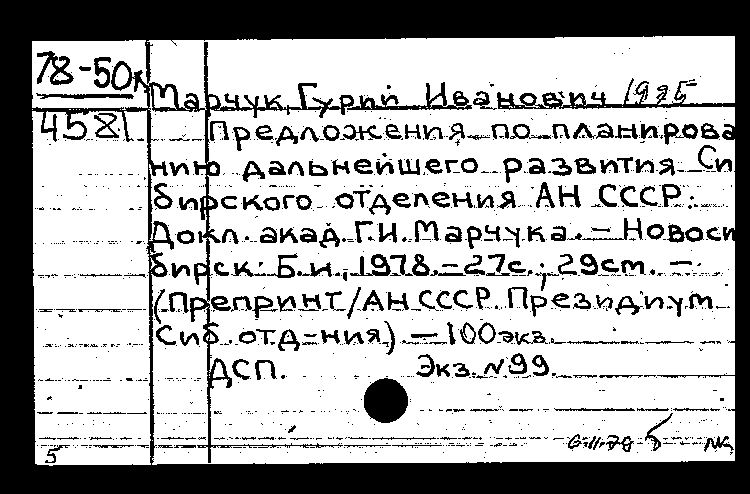 78-50л
Марчук, Гурий Иванович 1925
4581
Предложения по планирова
нию дальнейшего развития Си
бирского отделения АН СССР:
Докл. акад. Г.И. Марчука. – Новоси
бирск: Б.и., 1978. – 27с.; 29см. –
(Препринт/АН СССР. Президиум
Сиб. отд-ния) – 100экз.
ДСП. Экз. №99.
5